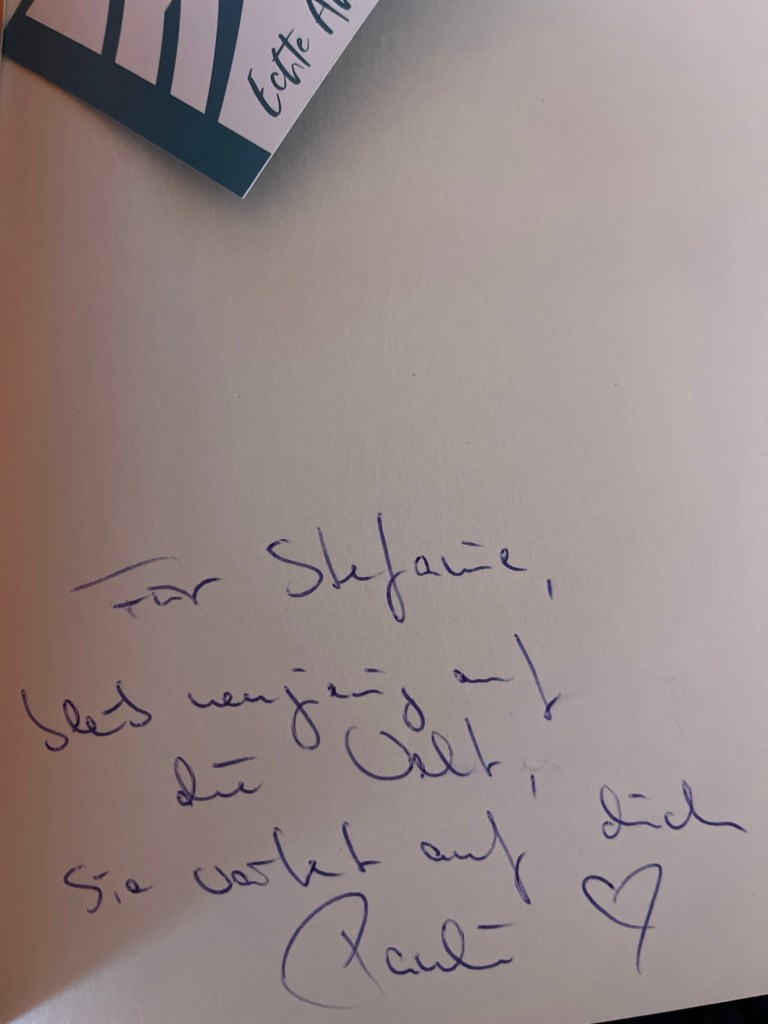 Echte
Für Stefanie,
bleib neugierig auf
die Welt,
Sie wartet auf dich